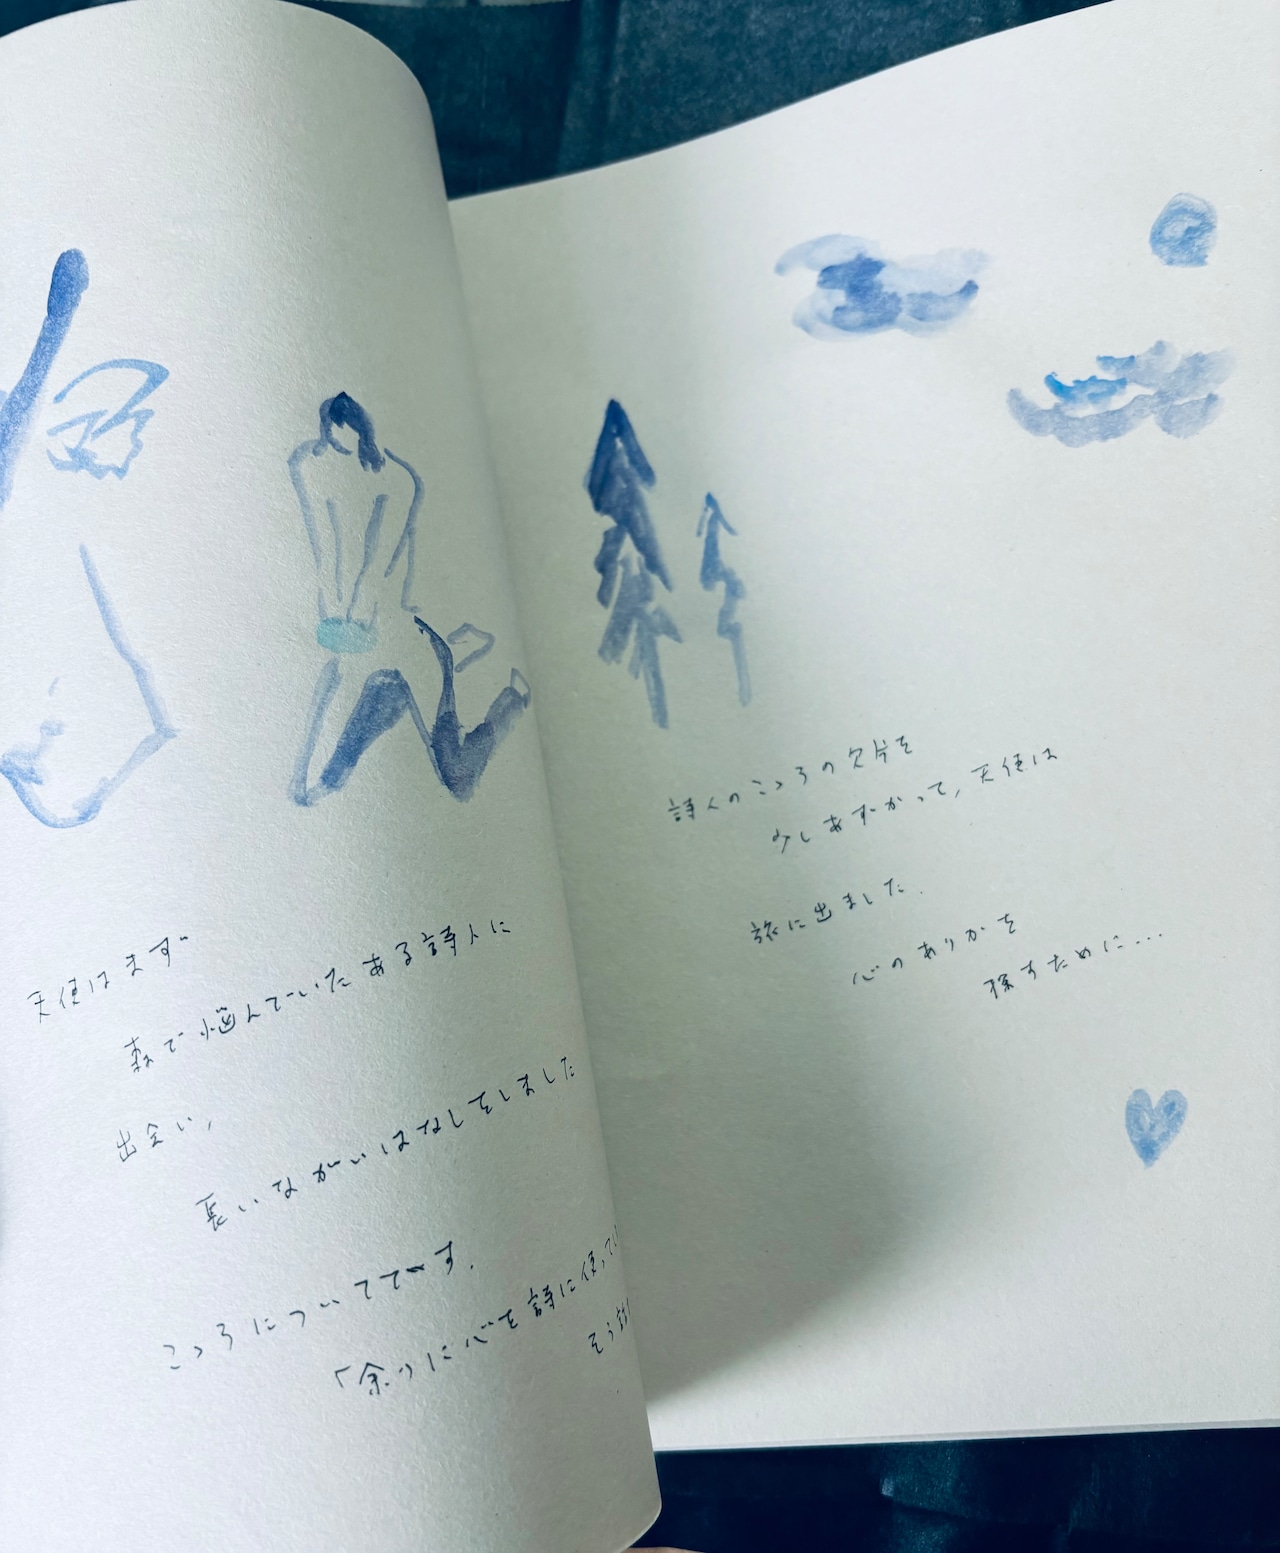 天使はまず
森で悩んでいたある詩人に
出会い,
長いながいはなしをしました
こゝろについてです.
「余りに心を詩に使,て
そう
詩人のこゝろの欠片を
少しあずかって,天使は
旅に出ました.
心のありかを
探すために...